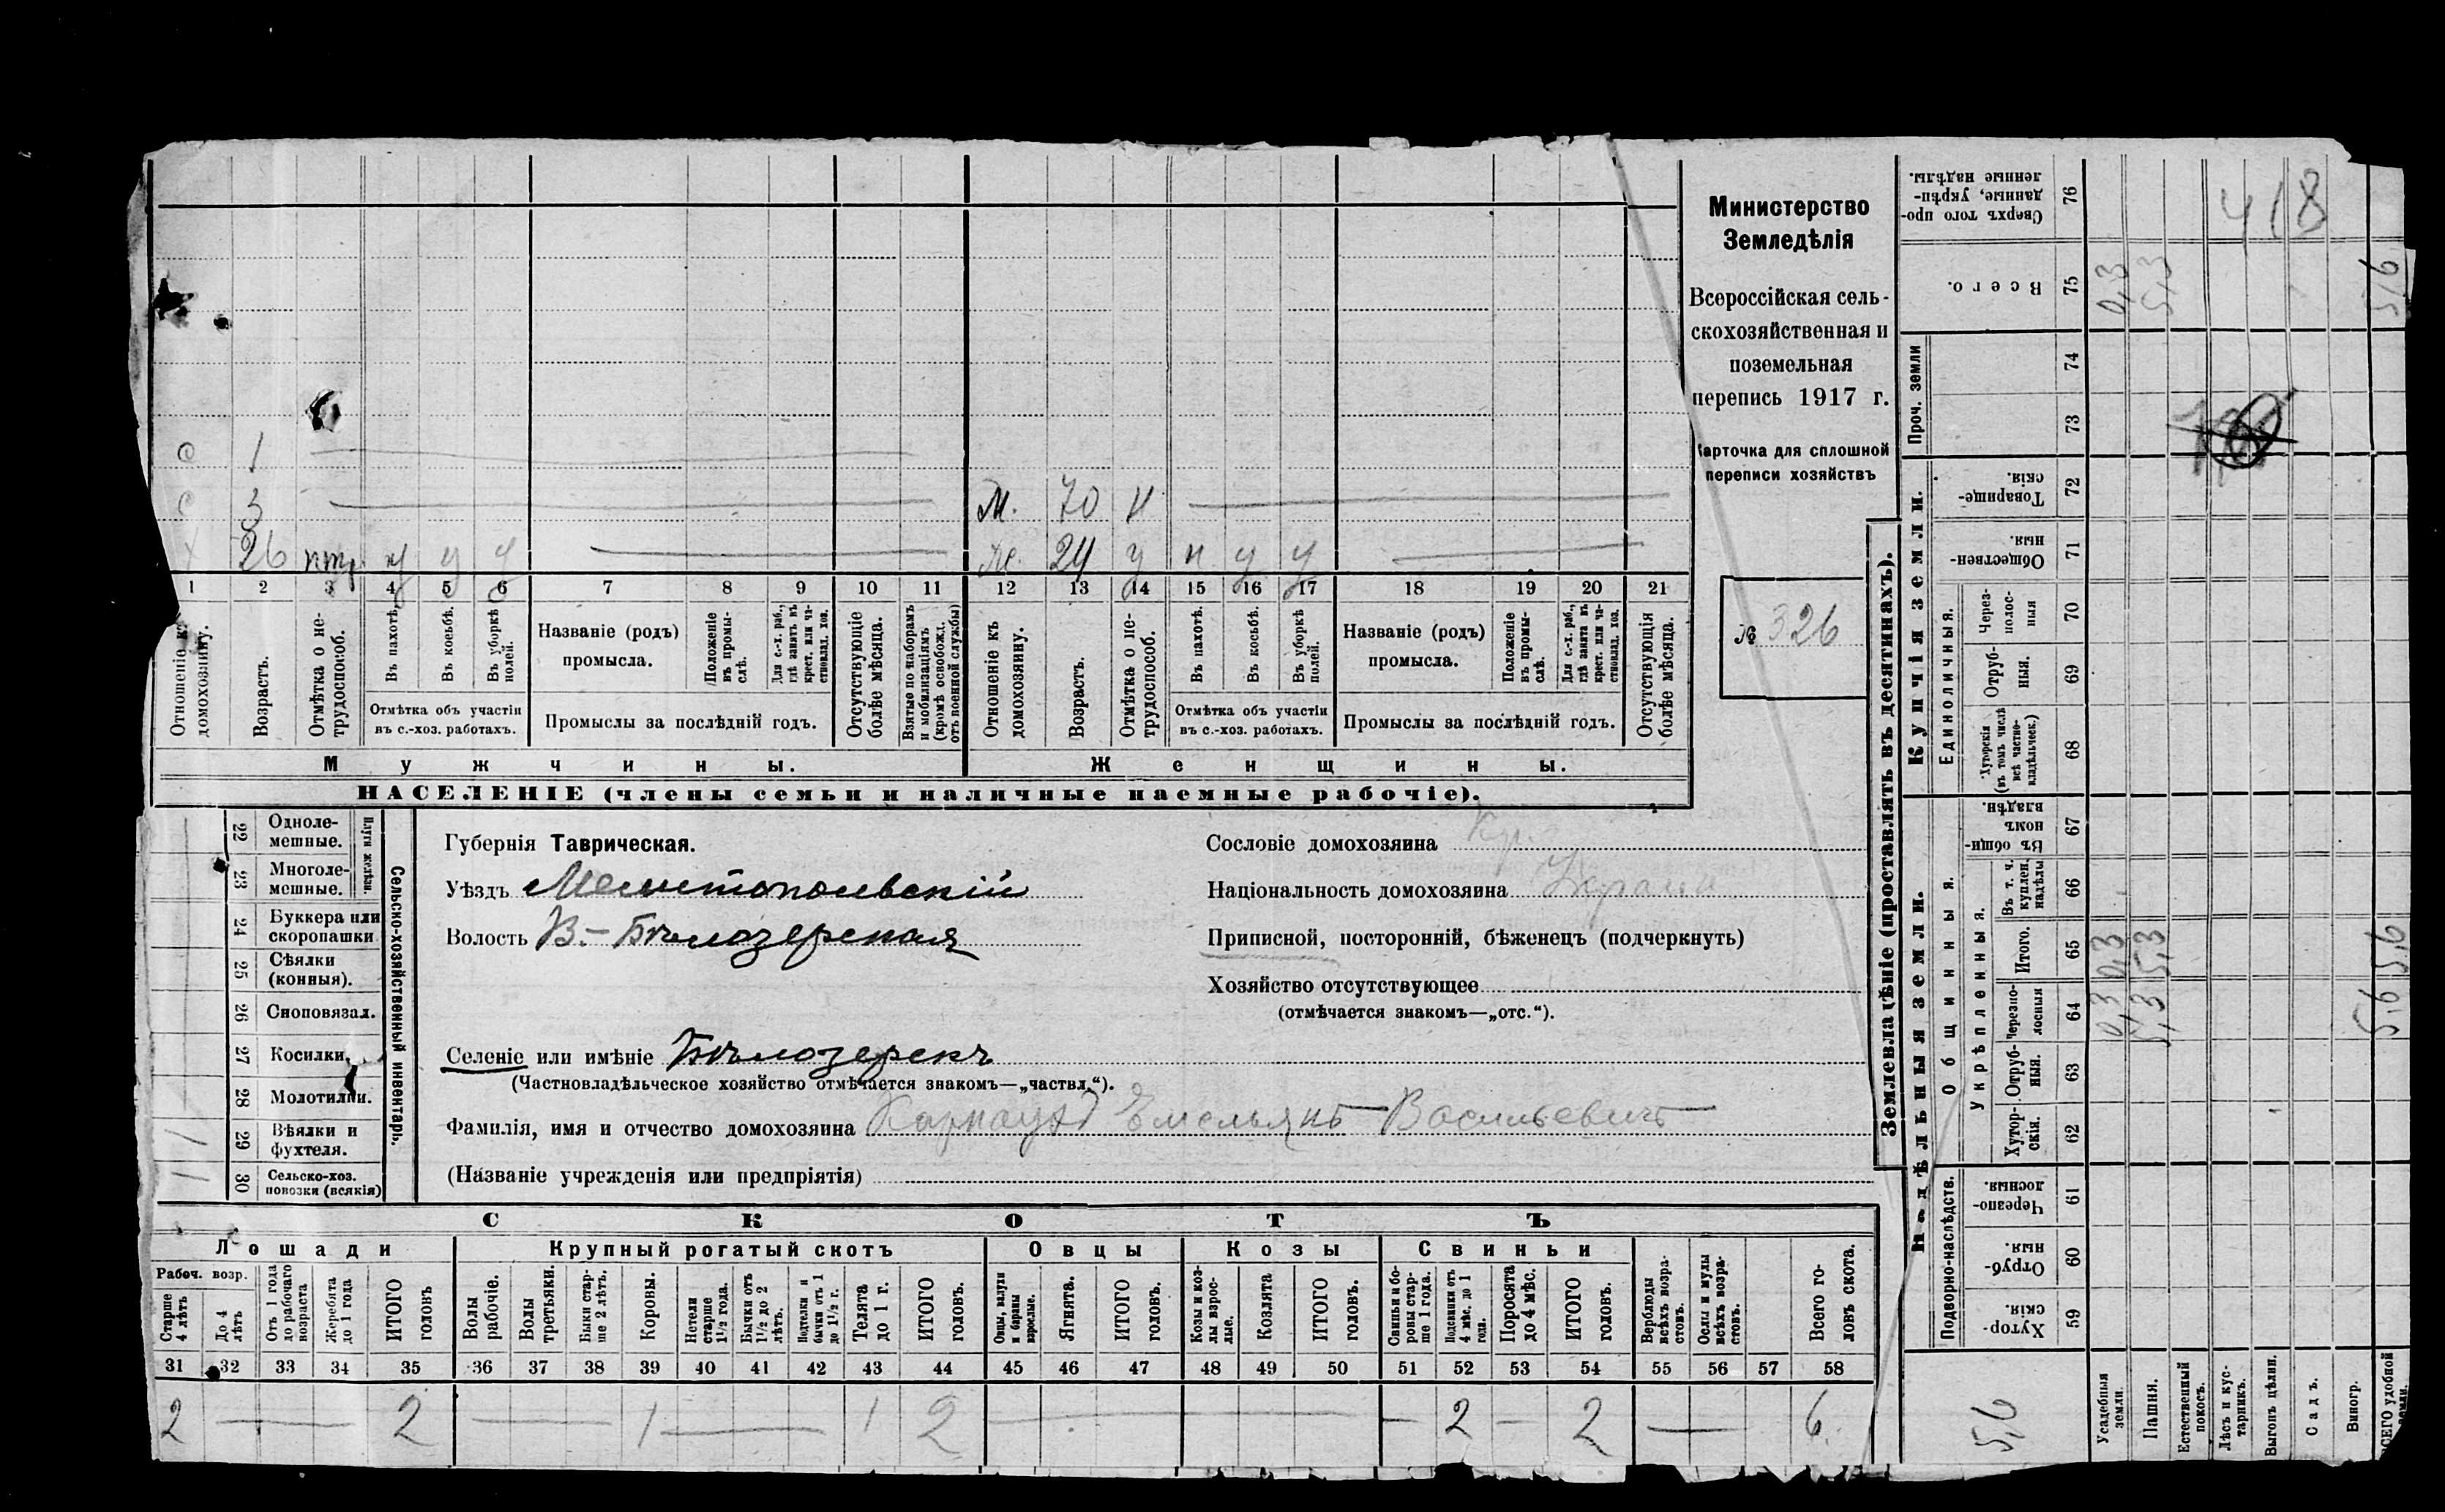 Министерство
Земледѣлія
Всероссійская сель-
скохозяйственная и
поземельная
перепись 1917 г.
Карточка для сплошной
переписи хозяйствъ
№ 326
с 1
с 3 М. 70 н
х 26 у у у М. 24 у н у у
1 2 3 4 5 6 7 8 9 10 11 12 13 14 15 16 17 18 19 20 21
Отношеніе къ домохозяину.
Возрастъ.
Отмѣтка о не-трудоспособ.
Въ пахотѣ.
Въ косьбѣ.
Въ уборкѣ полей.
Отмѣтка объ участіи
въ с.-хоз. работахъ.
Названіе (родъ)
промысла.
Положеніе въ промы-слѣ.
Для с.-х. раб., гдѣ занятъ въ крест. или ча-стновлад. хоз.
Промыслы за послѣдній годъ.
Отсутствующіе болѣе мѣсяца.
Взятые по наборамъ и мобилизаціямъ (кромѣ освобожд. отъ военной службы)
Отношеніе къ домохозяину.
Возрастъ.
Отмѣтка о не-трудоспособ.
Въ пахотѣ.
Въ косьбѣ.
Въ уборкѣ полей.
Отмѣтка объ участіи
въ с.-хоз. работахъ.
Названіе (родъ)
промысла.
Положеніе въ промы-слѣ.
Для с.-х. раб., гдѣ занята въ крест. или ча-стновлад. хоз.
Промыслы за послѣдній годъ.
Отсутствующія болѣе мѣсяца.
Мужчины. Женщины.
НАСЕЛЕНІЕ (члены семьи и наличные наемные рабочіе).
Сельско-хозяйственный инвентарь.
Плуги желѣзн.
22 Одноле-мешные.
23 Многоле-мешные.
24 Буккера или скоропашки
25 Сѣялки (конныя).
26 Сноповязал.
27 Косилки.
28 Молотилки.
29 Вѣялки и фухтеля. 1
30 Сельско-хоз. повозки (всякія) 1
Губернія Таврическая.
Уѣздъ Мелитопольскій
Волость В.-Бѣлозерская
Сословіе домохозяина Кр.
Національность домохозяина
Приписной, посторонній, бѣженецъ (подчеркнуть)
Хозяйство отсутствующее
(отмѣчается знакомъ—„отс.“).
Селеніе или имѣніе Бѣлозерскъ
(Частновладѣльческое хозяйство отмѣчается знакомъ—„частвл.“).
Фамилія, имя и отчество домохозяина Карпаухъ Емельянъ Васильевичъ
(Названіе учрежденія или предпріятія)
СКОТЪ
Лошади Крупный рогатый скотъ Овцы Козы Свиньи
Рабоч. возр.
Старше 4 лѣтъ
До 4 лѣтъ
Отъ 1 года до рабочаго возраста
Жеребята до 1 года
ИТОГО головъ
Волы рабочіе.
Волы третьяки.
Быки стар-ше 2 лѣтъ.
Коровы.
Нетели старше 1½ года.
Бычки отъ 1½ до 2 лѣтъ.
Подтелки и бычки отъ 1 до 1½ г.
Телята до 1 г.
ИТОГО головъ.
Овцы, валухи и бараны взрослые.
Ягнята.
ИТОГО головъ.
Козы и коз-лы взрос-лые.
Козлята
ИТОГО головъ.
Свиньи и бо-ровы стар-ше 1 года.
Подсвинки отъ 4 мѣс. до 1 года.
Поросята до 4 мѣс.
ИТОГО головъ.
Верблюды всѣхъ возра-стовъ.
Ослы и мулы всѣхъ возра-стовъ.
Всего го-ловъ скота.
31 32 33 34 35 36 37 38 39 40 41 42 43 44 45 46 47 48 49 50 51 52 53 54 55 56 57 58
2 — 2 — 1 — 1 2 — — 2 — 2 — 6
Землевладѣніе (проставлять въ десятинахъ).
Надѣльныя земли.
Купчія земли.
Проч. земли
Подворно-наслѣдств.
Общинныя.
Укрѣпленныя.
Единоличныя.
59 Хутор-скія.
60 Отруб-ныя.
61 Черезпо-лосныя
62 Хутор-скія.
63 Отруб-ныя.
64 Черезпо-лосныя
65 Итого.
66 Въ т. ч. куплен. надѣлы
67 Въ общи-номъ владѣн.
68 Хуторскія (въ томъ числѣ всѣ частно-владѣльческ.)
69 Отруб-ныя.
70 Через-полос-ныя
71 Обществен-ныя.
72 Товарище-скія.
73
74
75 Всего.
76 Сверхъ того про-данные, укрѣп-ленные надѣлы.
Усадебныя земли. 0,3 0,3 0,3
Пашня. 5,3 5,3 5,3
Естественный покосъ.
Лѣсъ и кус-тарникъ.
Выгонъ цѣлин.
Садъ.
Виногр.
ВСЕГО удобной земли. 5,6 5,6 5,6
5,6
418